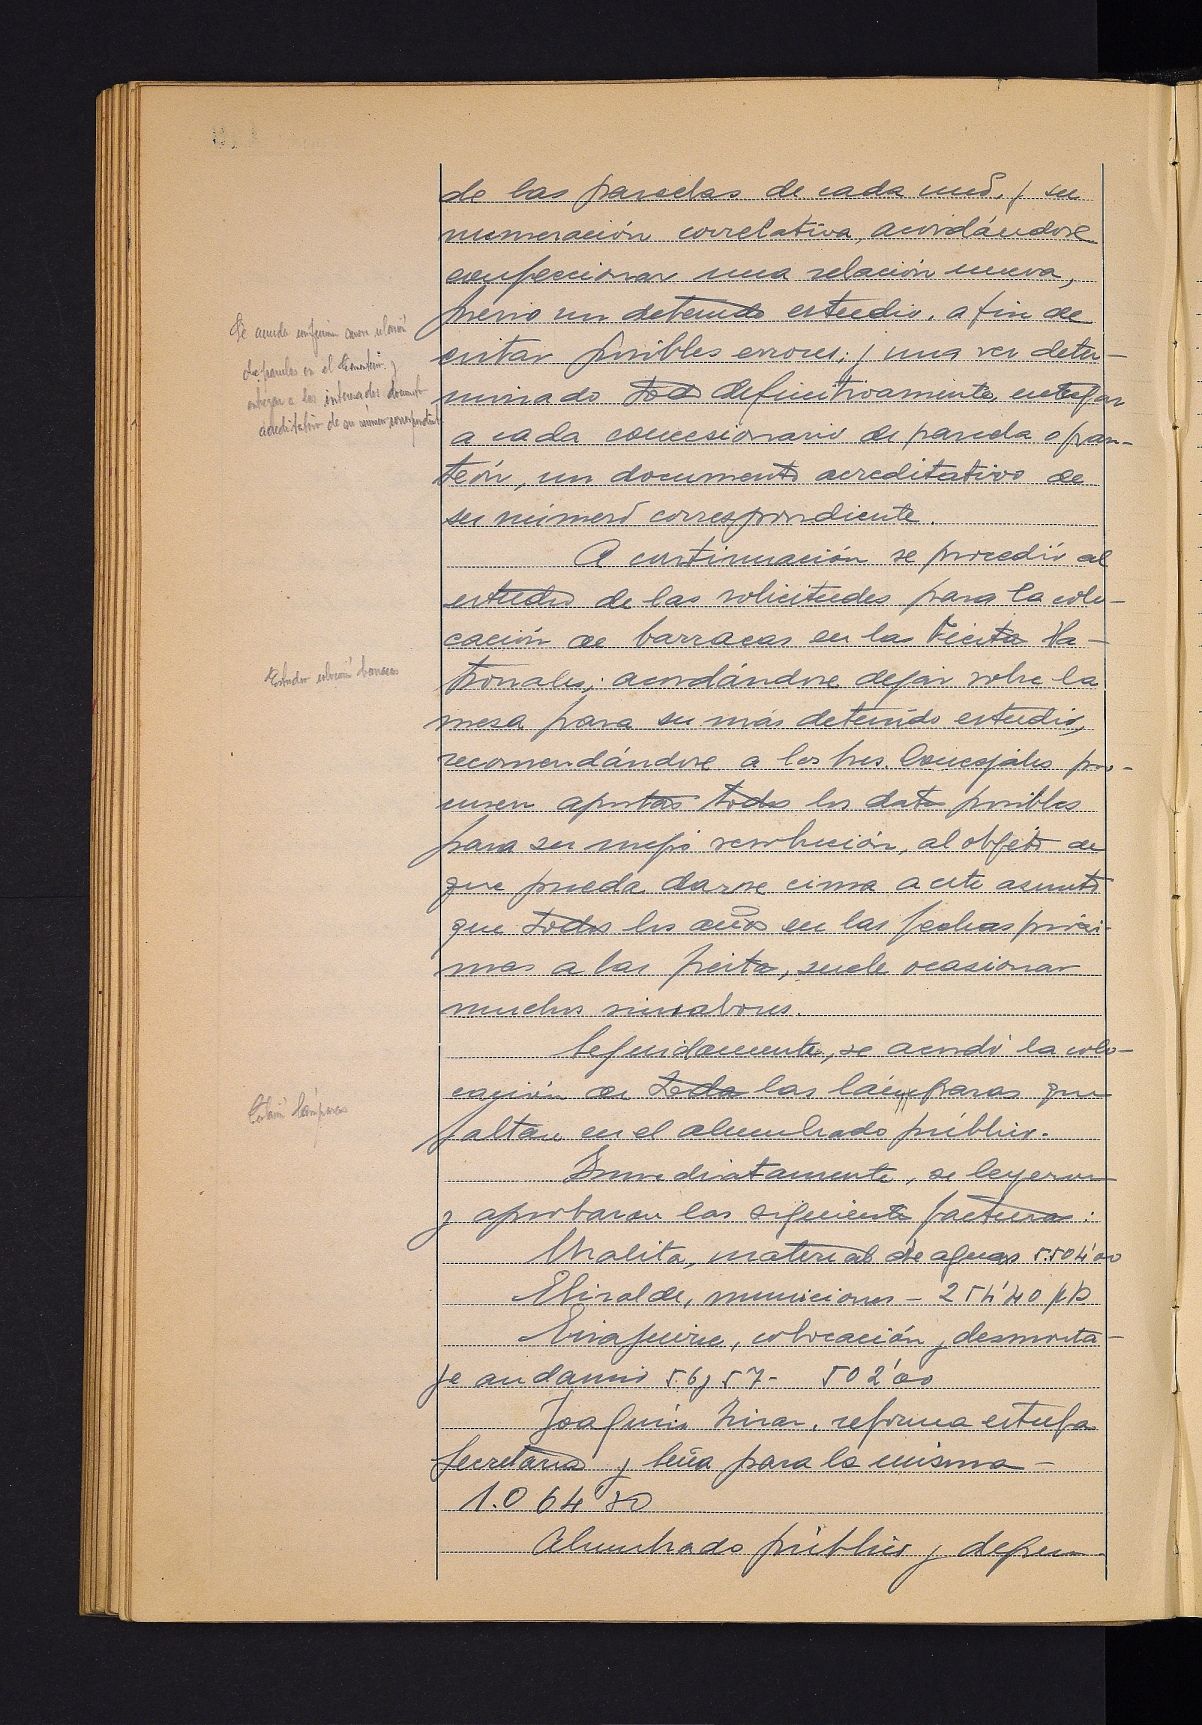 de las parcelas de cada uno, y su
numeración correlativa, acordándose
confeccionar una relación nueva,
previo un detenido estudio, a fin de
evitar posibles errores; y una vez deter-
minado todo definitivamente, entregar
a cada concesionario de parcela o pan-
teón, un documento acreditativo de
su número correspondiente.
A continuación se procedió al
estudio de las solicitudes para la colo-
cación de barracas en las Fiestas Pa-
tronales; acordándose dejar sobre la
mesa para su más detenido estudio,
recomendándose a los Sres. Concejales pro-
curen aportar todos los datos posibles
para su mejor resolución, al objeto de
que pueda darse cima a este asunto
que todos los años en las fechas próxi-
mas a las fiestas, suele ocasionar
muchos sinsabores.
Seguidamente, se acordó la colo-
cación de todas las lámparas que
faltan en el alumbrado público.
Inmediatamente, se leyeron
y aprobaron las siguientes facturas:
Uralita, material de aguas 5.504'00
Elizalde, municiones - 254'40 pts
colocación y desmonta-
je andamio 56 y 57- 502'00
Joaquín reforma estufa
Secretaría y leña para la misma -
1.064
Alumbrado público y depen-
Se acuerda confeccionar nueva relación
de parcelas en el Cementerio y
entregar a los interesados documento
acreditativo de su número correspondiente
Estudio colocación barracas
Colocación lámparas